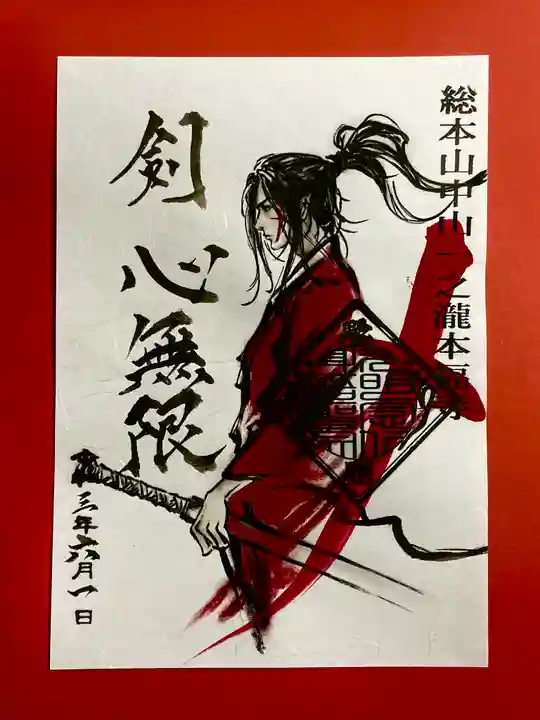 総本山中山一之瀧本福寺
剣心無限
三年六月一日